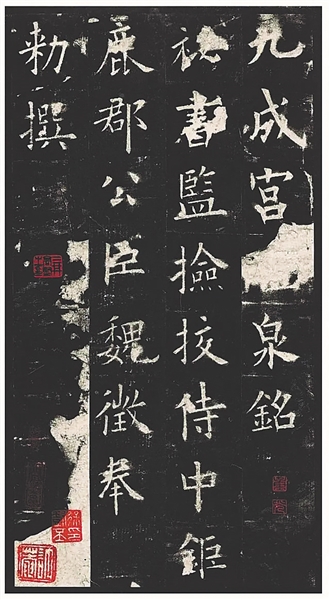 九成宮泉銘
秘書監撿挍侍中鉅
鹿郡公臣魏徵奉
勅撰